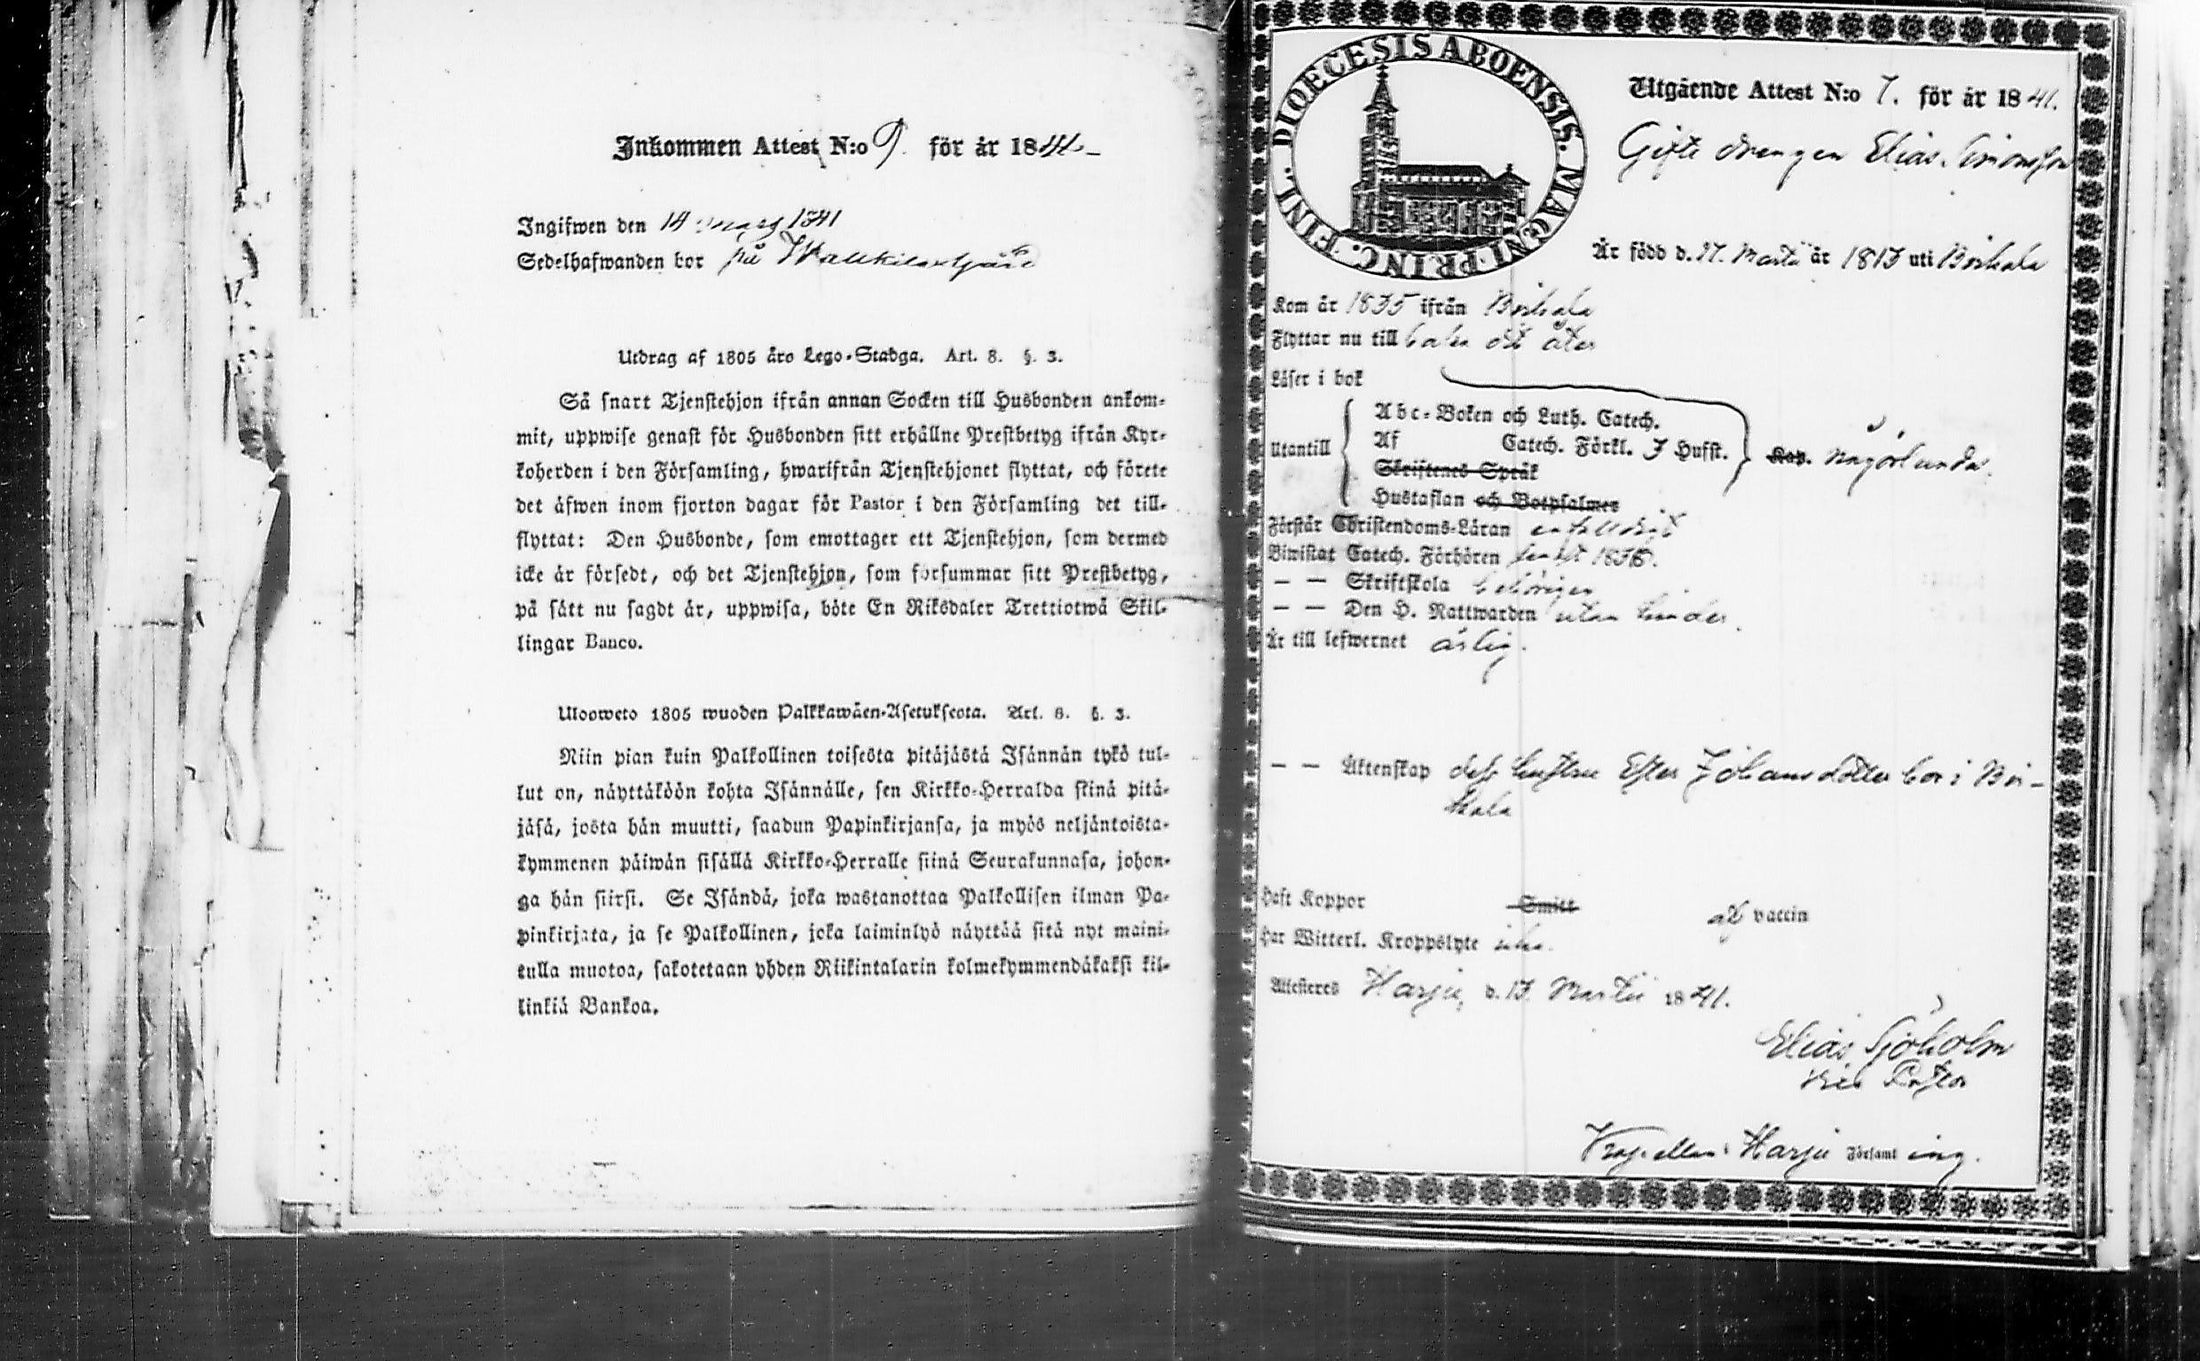 Inkommen Attest N:o 9. för år 1841.
Ingifwen den 14 Mars 1841
Sedelhafwanden bor på
Utdrag af 1805 åro Lego-Stadga. Art. 8. §. 3.
Så snart Tjenstehjon ifrån annan Socken till Husbonden ankom-
mit, uppwise genast för Husbonden sitt erhållne Prestbetyg ifrån Kyr-
koherden i den Församling, hwarifrån Tjenstehjonet flyttat, och förete
det äfwen inom fjorton dagar för Pastor i den Församling det till-
flyttat: Den Husbonde, som emottager ett Tjenstehjon, som dermed
icke är försedt, och det Tjenstehjon, som försummar sitt Prestbetyg,
på sätt nu sagdt är, uppwisa, böte En Riksdaler Trettiotwå Skil-
lingar Banco.
Uloosweto 1805 wuoden Palkkawäen-Asetuksesta. Art. 8. §. 3.
Niin pian kuin Palkollinen toisesta pitäjästä Isännän tykö tul-
lut on, näyttäköön kohta Isännälle, sen Kirkko-Herralda siinä pitä-
jäsä, josta hän muutti, saadun Papinkirjansa, ja myös neljäntoista-
kymmenen päiwän sisällä Kirkko-Herralle siinä Seurakunnasa, johon-
ga hän siirsi. Se Isändä, joka wastanottaa Palkollisen ilman Pa-
pinkirjata, ja se Palkollinen, joka laiminlyö näyttää sitä nyt maini-
tulla muotoa, sakotetaan yhden Riikintalarin kolmekymmendäkaksi kil-
linkiä Bankoa.
DIOECESIS ABOENSIS. MAGNI PRINC. FINL.
Utgående Attest N:o 7. för år 1841.
Gifte drengen Elias Simonsson
Är född d. 27. Martii år 1813 uti Birkala
Kom år 1835 ifrån Birkala
Flyttar nu till dit åter
Läser i bok
Utantill
Abc-Boken och Luth. Catech.
Af Catech. Förkl. 3 Hufst.
Skriftenes Språk
Hustaflan och Botpsalmer
Kap. någorlunda.
Förstår Christendoms-Läran enfaldigt
Biwistat Catech. Förhören
— — Skriftskola behörigen
— — Den H. Nattwarden utan hinder.
Är till lefwernet ärlig.
— — Äktenskap dess hustru Ester Johansdotter bor i Bir-
kala
Haft Koppor Smitt af vaccin
Har Witterl. Kroppslyte icke.
Attesteres Harju, d. 13. Martii 1841.
Elias Sjöholm
Vice Pastor
Kapellan i Harju Församl ing.